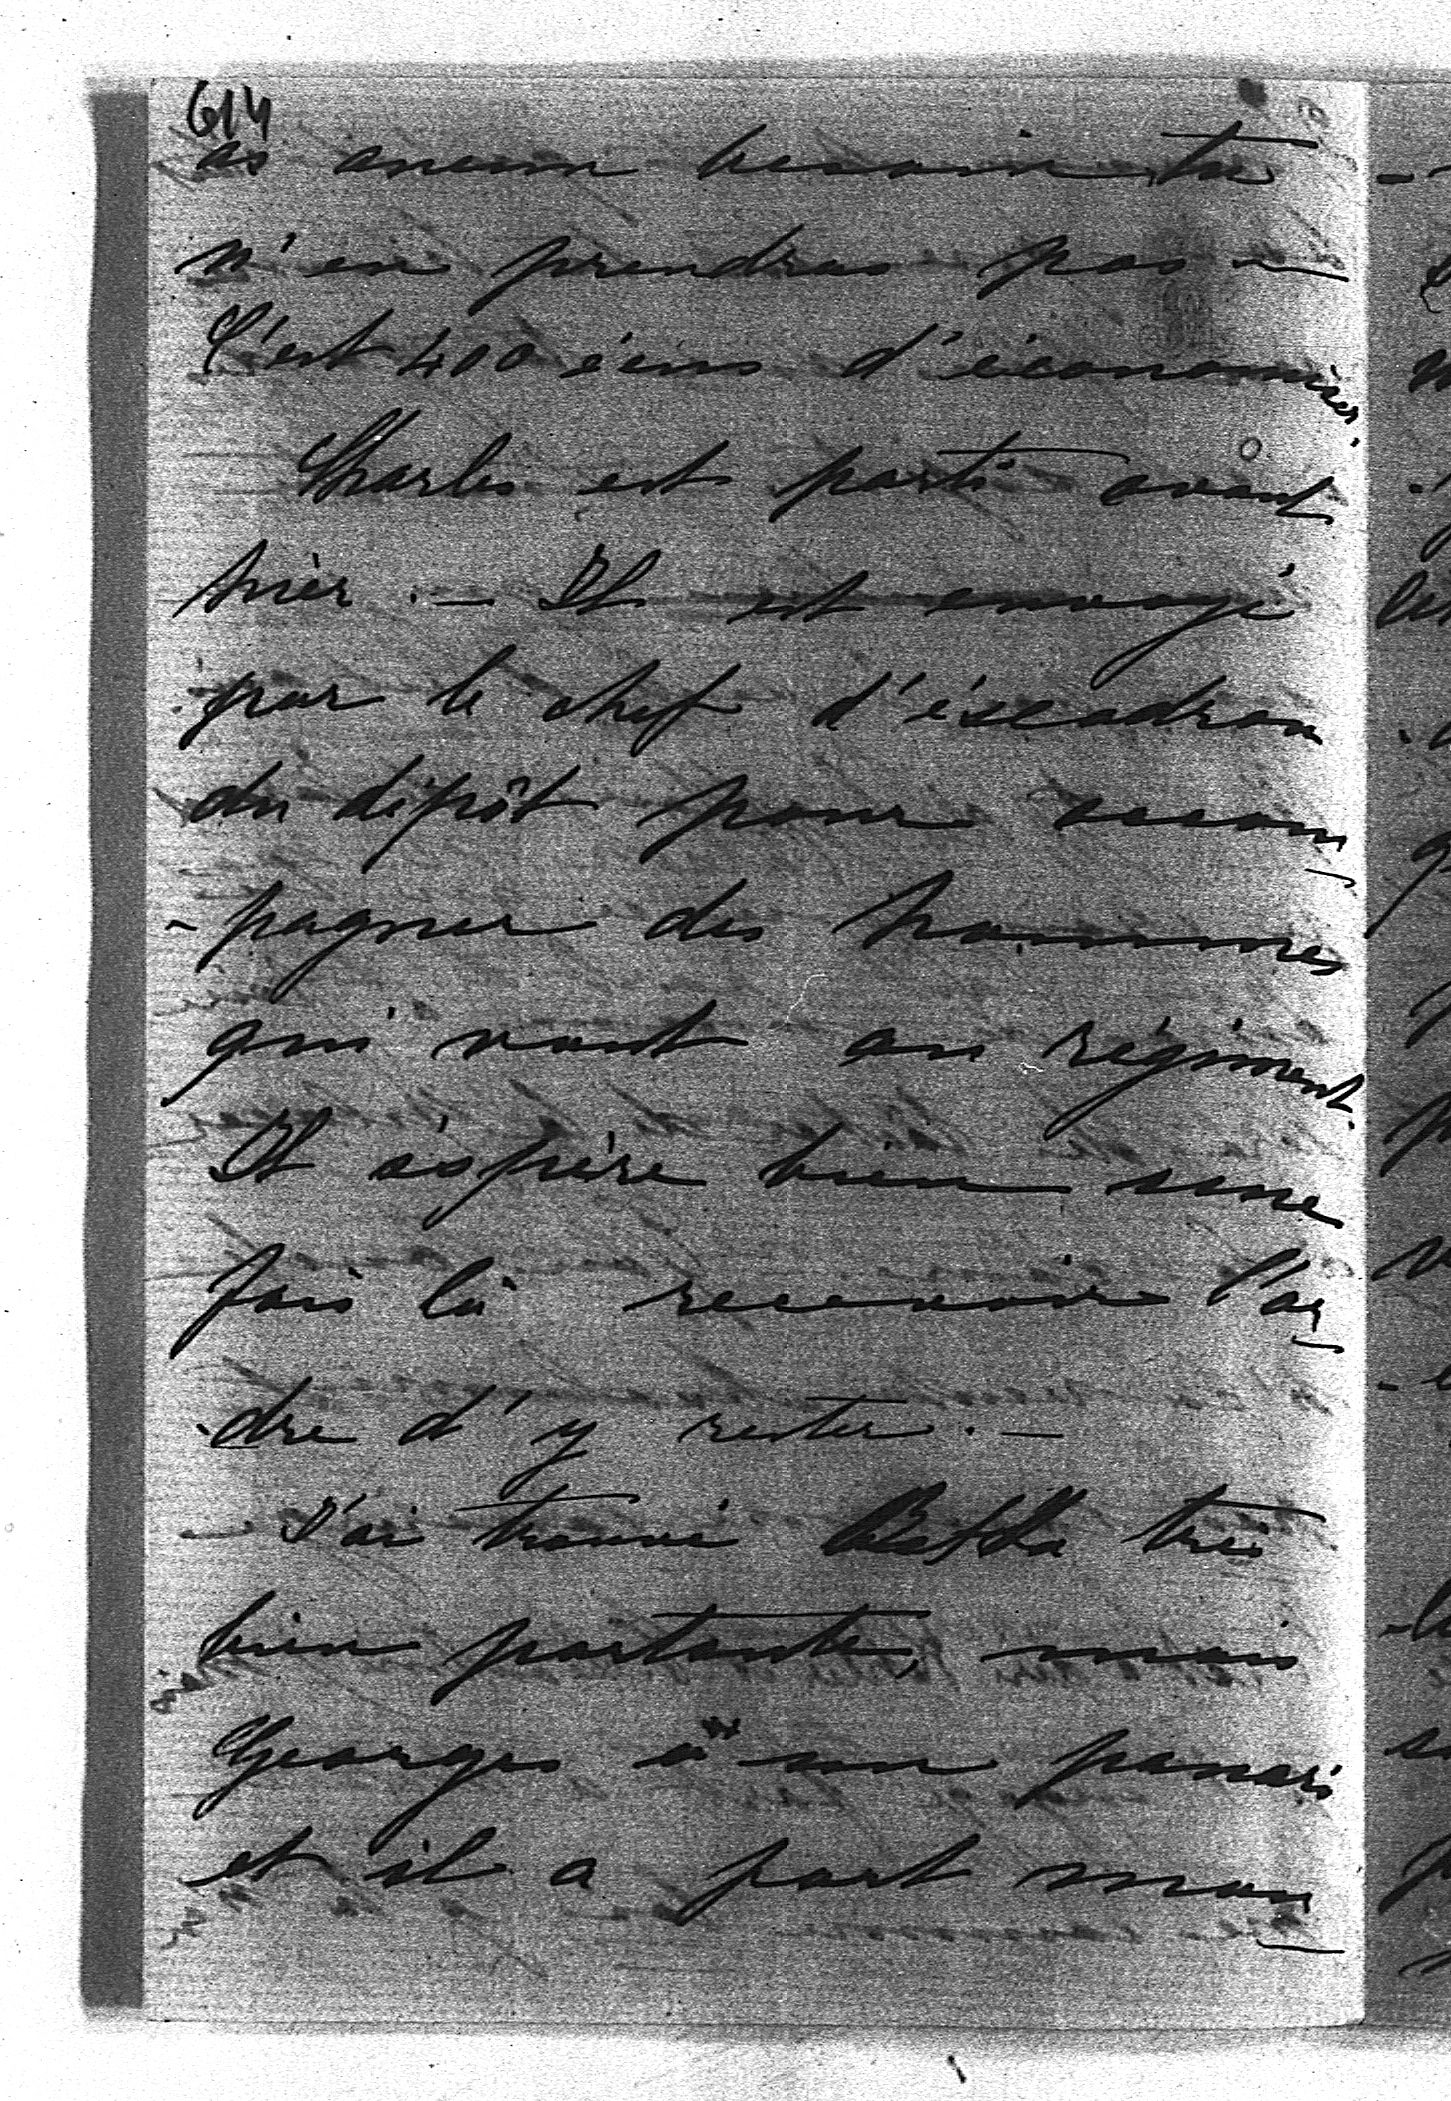 614
as aucun besoin tu
n'en prendras pas —
C'est 400 écus d'économiser.
Charles est parti avant
hièr. — Il est envoyé
par le chef d'éscadron
du dépôt pour accom
- pagner des hommes
qui vont au régiment.
Il éspère bien une
fois là recevoir l'or
- dre d'y rester. —
- J'ai trouvé très
bien portante, mais
Georges a un panari
et il a fort mau